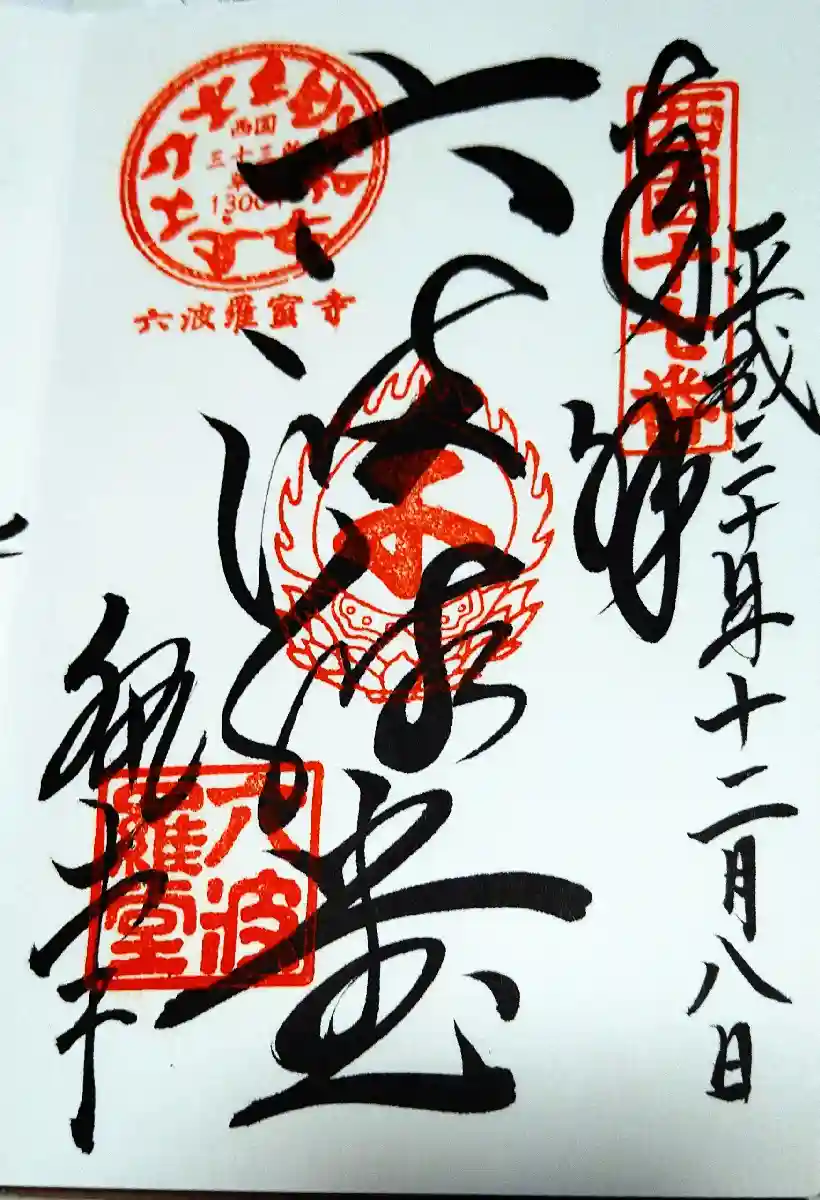 奉拝
西国十七番
平成三十年十二月八日
六波羅堂
西国
三十三所
1300年
六波羅蜜寺
六波
羅堂